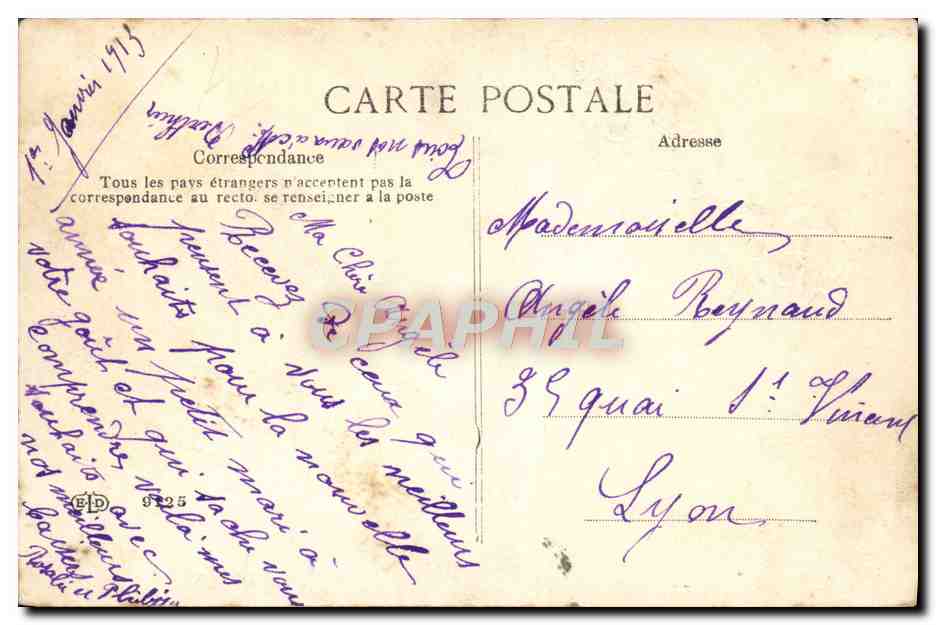 CARTE POSTALE
Correspondance
Tous les pays étrangers n'acceptent pas la
correspondance au recto. se renseigner a la poste
Adresse
1er Janvier 1913
Ma Chère Angèle
Recevez de ceux qui
pensent à vous les meilleurs
souhaits pour la nouvelle
année un petit mari à
votre goût et qui sache vous
comprendre voilà mes
souhaits avec
nos meilleurs
baisers
Rosalie et
nos vœux
Berthin
Mademoiselle
Angèle Reynaud
35 quai St Vincent
Lyon
ELD
9225
CPAPHIL